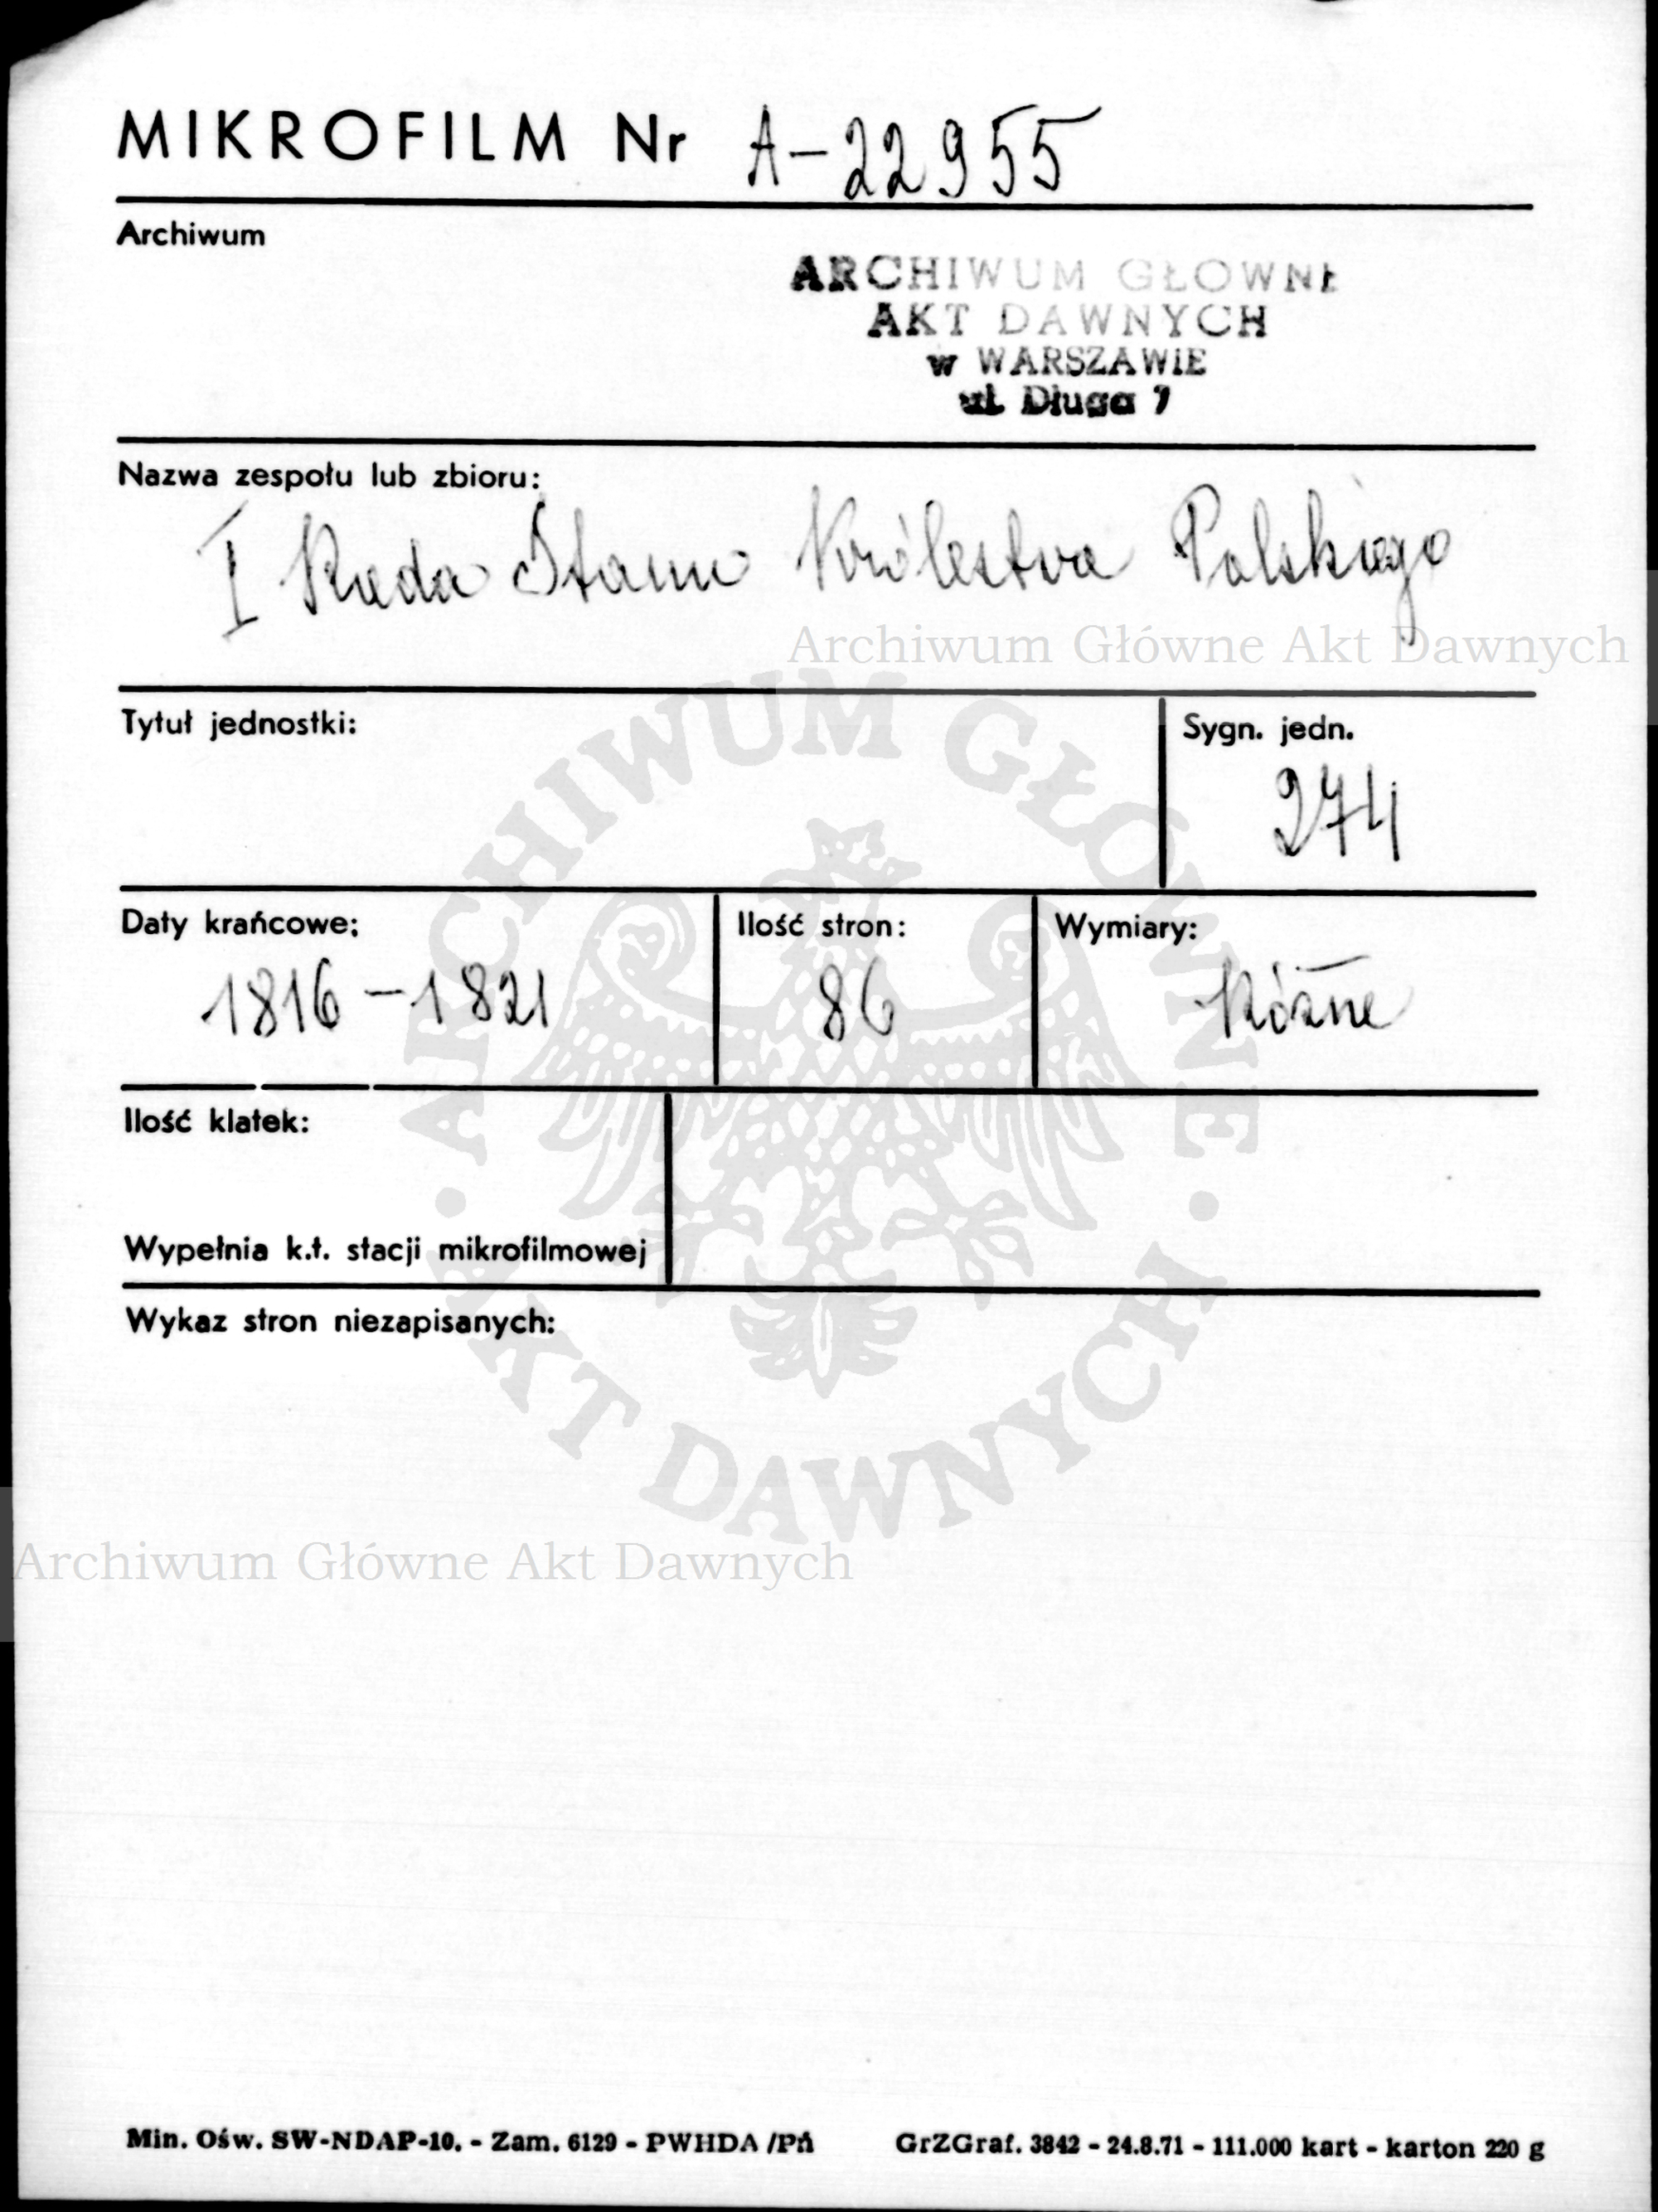 MIKROFILM Nr A-22955
Archiwum
ARCHIWUM GŁOWNE
AKT DAWNYCH
w WARSZAWIE
ul. Długa 7
Nazwa zespołu lub zbioru:
I Rada Stanu Królestwa Polskiego
Archiwum Główne Akt Dawnych
Tytuł jednostki:
Sygn. jedn.
274
Daty krańcowe:
Ilość stron:
Wymiary:
1816-1821
86
Różne
Ilość klatek:
Wypełnia k.t. stacji mikrofilmowej
Wykaz stron niezapisanych:
ARCHIWUM GŁÓWNE
AKT DAWNYCH
Archiwum Główne Akt Dawnych
Min. Ośw. SW-NDAP-10. - Zam. 6129 - PWHDA /Pń GrZGraf. 3842 - 24.8.71 - 111.000 kart - karton 220 g